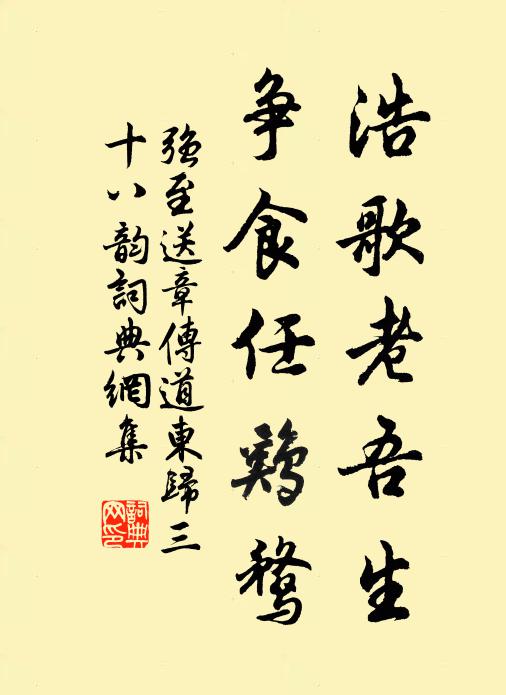 浩歌老吾生
争食任鷄鶩
強至送章傳道東歸三
十八韵詞典網集
詞典
网印